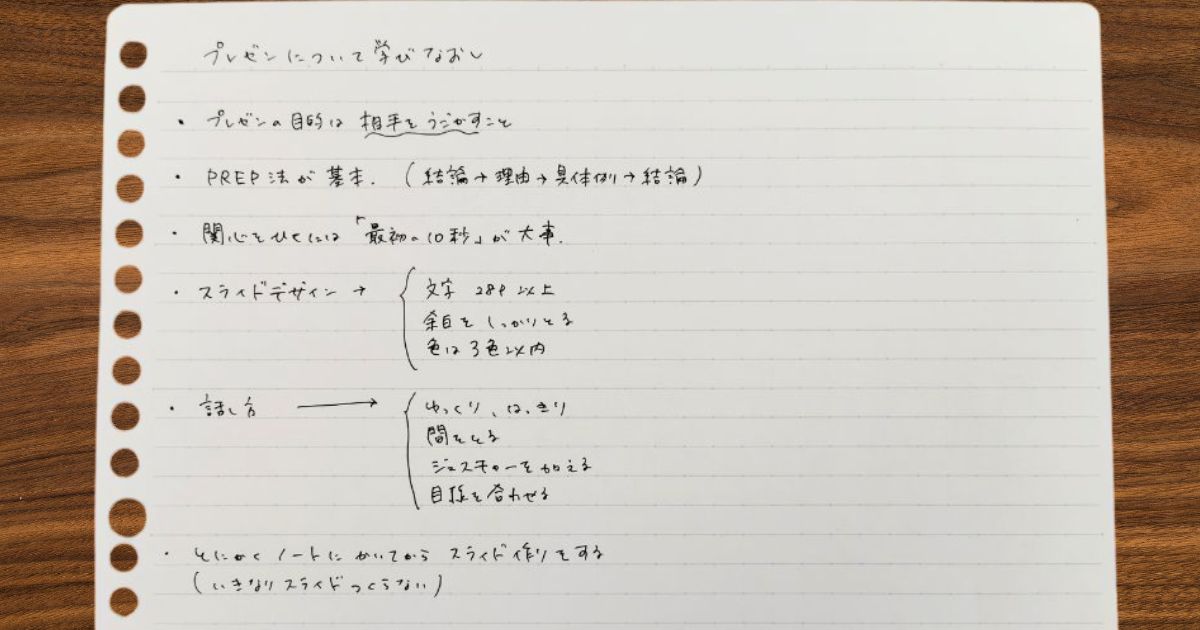 プレゼンについて学びなおし
・プレゼンの目的は相手をうごかすこと
・PREP法が基本.（結論→理由→具体例→結論）
・関心をひくには「最初の10秒」が大事.
・スライドデザイン→
文字 28pt以上
余白をしっかりとる
色は3色以内
・話し方→
ゆっくり、はっきり
間をとる
ジェスチャーを加える
目線を合わせる
・とにかくノートにかいてからスライド作りをする
（いきなりスライドつくらない）